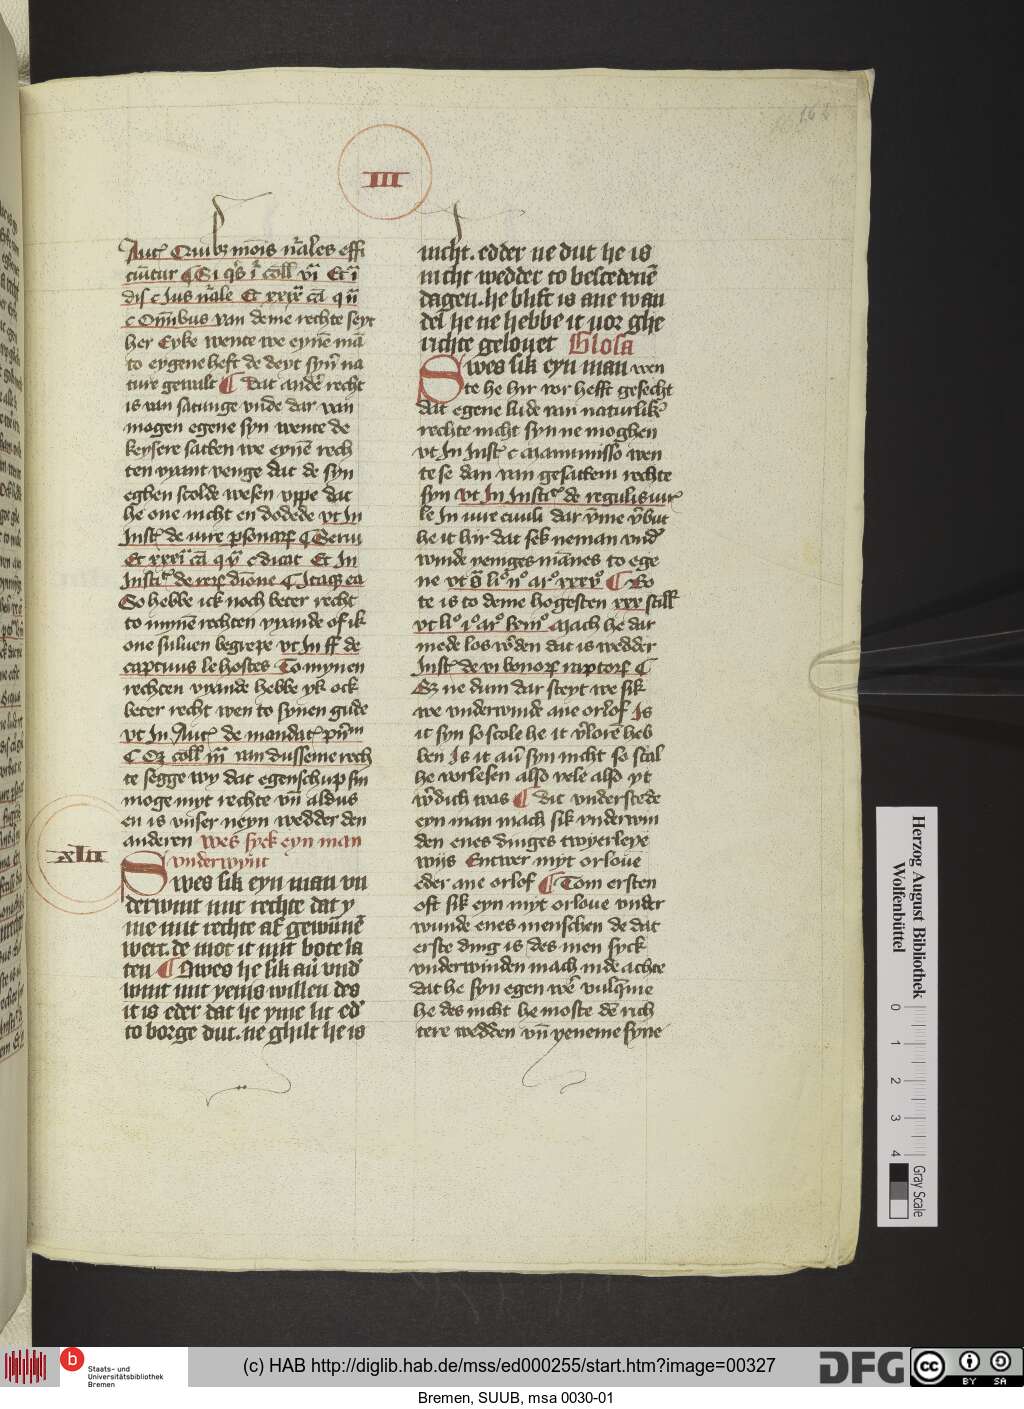 III
Aut̄ Quibꝫ mōis nr̄ales effi
ciūtur ¶ Si qͥs ī coll̄ vı̄ Et ī
dis c Ius nr̄ale Et xxıx cā q ıı̄
c Om̄ibus van deme rechte seyt
her Eyke wente we eynē mā
to eygene heft de deyt syn̄ na
ture gewalt ¶ Dat ander̄ recht
is van satunge vnde dar van
mogen egene syn wente de
keysere sacken we eynē rech
ten vyant venge dat de syn
eghen scolde wesen vppe dat
he one nicht en dodede vt In
Inst̄ de iure ꝑsonarꝝ ¶ Serui
Et xxxı cā q v̄ c dicat Et In
Instic̄ de reꝝ diōne ¶ Itaqꝫ ea
So hebbe ick noch beter recht
to mynē rechten vyande of ik
one suluen begrepe vt In ff de
captiuis le hostes To mynen
rechten vyande hebbe yk ock
beter recht wen to synen gude
vt In Aut̄ de mandat̄ pn̄m
¶ Oꝫ coll̄ ııı̄ van dusseme rech
te segge wy dat egenschup sin
moge myt rechte vn̄ aldus
en is vnser neyn wedder den
anderen Wes syck eyn man
xlıı
vnderwynt
Swes sik eyn man vn
derwint mit rechte dat y
me mit rechte af gewūnē
wert. de mot it mit bote la
ten ¶ Swes he sik au̅ vnd̕
wint mit yenis willen des
it is eder dat he yme lit ed̕
to borge dut. ne ghilt he is
nicht. edder ne dut he is
nicht wedder to bescedenē
dagen. he blift is ane wan
del he ne hebbe it vor ghe
richte gelouet Glosa
Swes sik eyn man wen
te he hir vor hefft gesecht
dat egene lude van naturlikē
rechte nicht syn ne moghen
vt In Inst̄ c Manumisso wen
te se dan van gesattem rechte
syn vt In Instic̄ de regulis iur̄
le In iure ciuili dar v̄me v̄but
he it hir dat sek neman vnd̕
winde neniges mānes to ege
ne vt ē liº ııº arº xxxıı̄ ¶ Bo
te is to deme hogesten xxx still̄
vt liº ıº arº Mach he dar
mede los w̄den dat is wedder
Inst̄ de vi bonorꝝ raptorꝝ ¶
Sꝫ ne dum dar steyt we sik
we vnderwinde ane orlof Is
it syn so scole he it v̄lore heb
ben Is it au̅ syn nicht so scal
he vorlesen also vele also yt
w̄dich was ¶ Dit vnderstede
eyn man mach sik vnderwin
den enes dinges twyerleye
wijs Entwer myt orloue
eder ane orlof ¶ Tom ersten
oft sik eyn myt orloue vnder
wunde enes menschen de dat
erste ding is des men syck
vnderwinden mach in de achte
dat he syn egen wer̄
he des nicht he moste dē rich
tere wedden vn̄ yeneme syne
Herzog August Bibliothek
Wolfenbüttel
0 1 2 3 4
Gray Scale
b
Staats- und
Universitätsbibliothek
Bremen
(c) HAB http://diglib.hab.de/mss/ed000255/start.htm?image=00327
DFG
cc BY SA
Bremen, SUUB, msa 0030-01